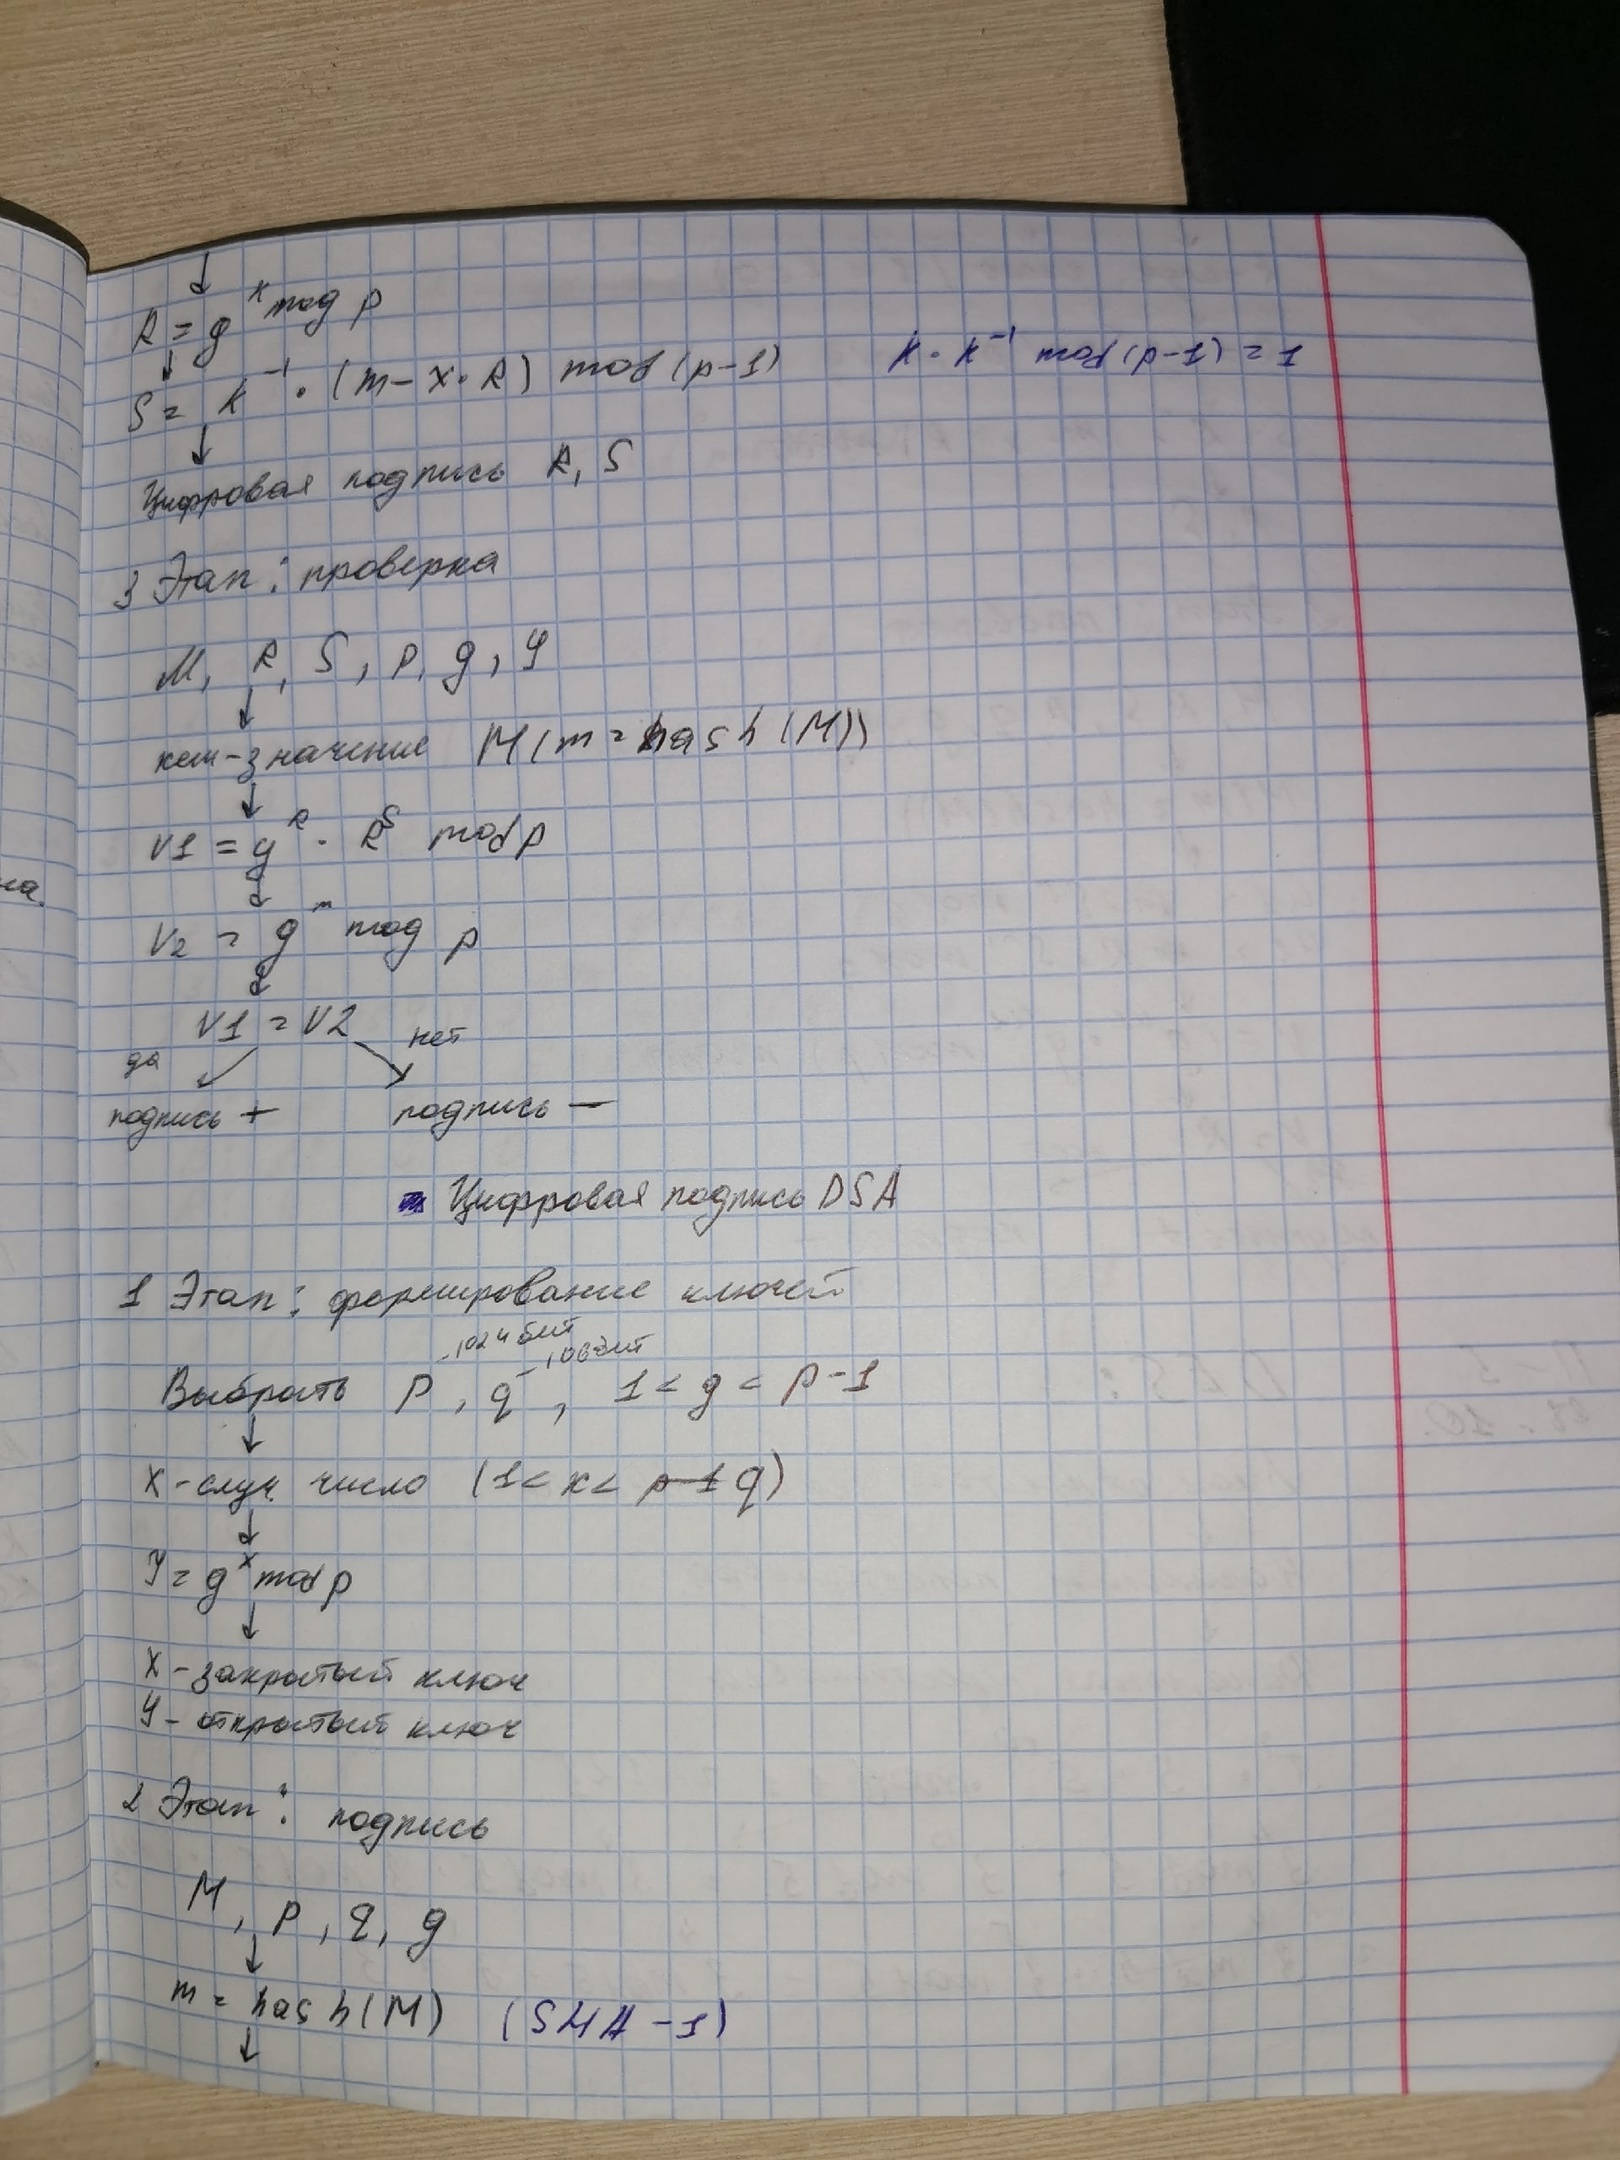 ↓
R = g^k mod p
↓
S = k^-1 · (m - x · R) mod (p-1) k · k^-1 mod (p-1) = 1
↓
Цифровая подпись R, S
3 Этап: проверка
M, R, S, p, g, y
↓
хеш-значение M (m = hash (M))
↓
V1 = y^R · R^S mod p
↓
V2 = g^m mod p
↓
V1 = V2
да нет
подпись + подпись —
Цифровая подпись DSA
1 Этап: формирование ключей
-1024 бит
Выбрать p, q, 1 < g < p-1
↓
x - случ. число (1 < x < p-1 q)
↓
y = g^x mod p
↓
x - закрытый ключ
y - открытый ключ
2 Этап: подпись
M, p, q, g
↓
m = hash (M) (SHA-1)
↓